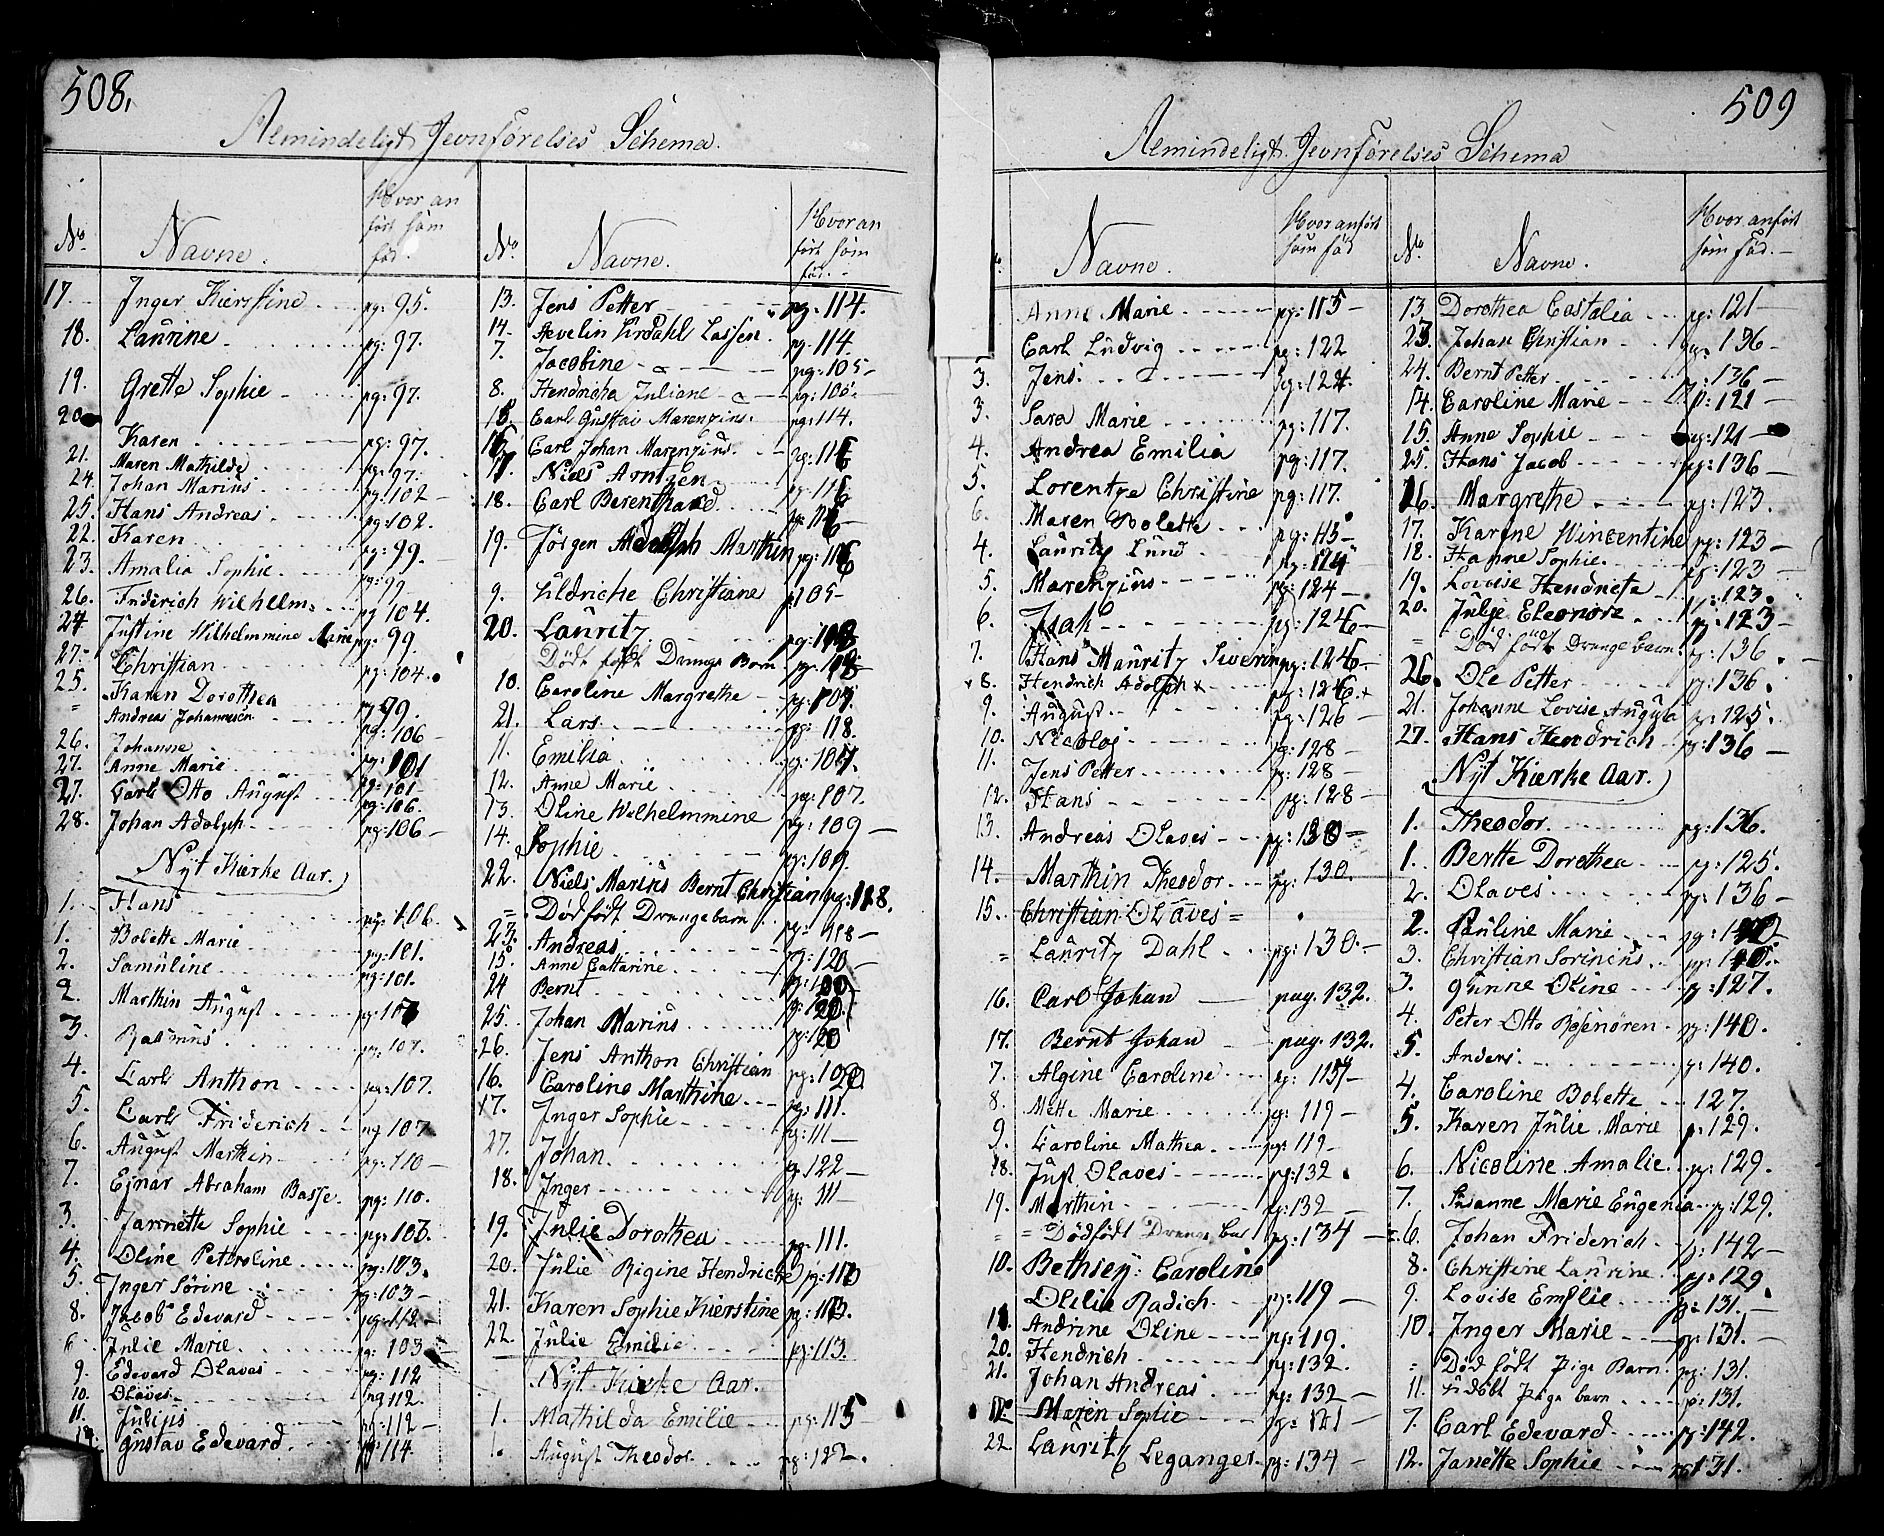 508.
Almindeligt Jevnførelses Schema.
No. Navne. Hvor an ført som fød.
17. Inger Kierstine pg: 95.
18. Laurine pg: 97.
19. Grette Sophie pg: 97.
20 Karen pg: 97.
21. Maren Mathilde pg: 97.
24. Johan Marius pg: 102
25. Hans Andreas pg: 102.
22. Karen pg: 99.
23. Amalia Sophie pg: 99
26. Friderich Wilhellm pg 104.
24 Justine Wilhelmmine Marie pg: 99.
27 Christian pg: 104.
25. Karen Dorothea pg 99.
= Andreas Johannesen pg: 106
26. Johanne pg: 101
27. Anne Marie pg: 101
27. Carl Otto August pg: 106.
28. Johan Adolph pg: 106
Nyt Kierke Aar.
1. Hans pg: 106.
1. Bolette Marie pg: 101.
2. Samuline pg: 101.
2. Marthin August pg: 107
3. Rasmus pg: 107.
4. Carl Anthon pg: 107.
5. Carl Friderich pg 107
6. August Marthin pg: 110
7. Ejnar Abraham Basse pg: 110.
3. Jannette Sophie pg: 103.
4. Oline Petroline pg: 103.
5. Inger Sørine pg: 103
8. Jacob Edevard pg: 112
6 Julie Marie pg: 103
9. Edevard Olaves pg: 112
10. Olaves pg 112.
11. Julius pg: 112
12. Gustav Edevard pg 114.
No. Navne. Hvor an ført som fød.
13. Jens Petter pg: 114.
14. Aevelin Lassen pg. 114.
7. Jacobine pg: 105
8. Hendricha Juliane pg: 105.
15. Carl Gustav Marenzius pg: 114.
16. Carl Johan Marenzius pg: 116
17. Niels Arntzen pg: 116
18. Carl Berenthard pg: 116
19. Jørgen Adolph Marthin pg: 116
9. Uldriche Christiane p 105
20. Lauritz pg: 118
Dødt født Drenge Barn pg: 118
10. Caroline Margrethe pg: 107.
21. Lars pg: 118.
11. Emilia pg: 107.
12. Anne Marie pg: 107.
13. Oline Wilhelmmine pg: 109
14. Sophie pg: 109.
22. Niels Marius Bernt Christian pg: 118.
= Dødfødt Drengebarn pg= 118
23. Andreas pg: 120
15. Anne Cattarine pg: 109
24 Bernt pg: 120
25. Johan Marius pg: 120
26. Jens Anthon Christian pg: 120
16. Caroline Marthine pg: 111.
17. Inger Sophie pg: 111
27. Johan pg 122
18. Inger pg: 111
19. Julie Dorothea pg: 111.
20. Julie Rigine Hendriche pg: 110
21. Karen Sophie Kierstine pg: 113.
22. Julie Emilie pg: 113.
Nyt Kierke Aar.
1. Mathilda Emilie pg: 115
1. August Theodor pg: 122.
509
Almindeligt Jevnførelses Schema
Navne. Hvor anført som fød
Anne Marie pg: 115
Carl Ludvig pg: 122
3. Jens pg: 124.
3. Sara Marie pg: 117.
4. Andrea Emilia pg: 117.
5. Lorentze Christine pg: 117.
6. Maren Bolette pg: 115
4. Lauritz Lund pg: 124
5. Marenzius pg: 124
6. Isak pg: 126
7. Hans Mauritz Siverin pg: 126
x 8. Hendrich Adolph x pg: 126. x
9. August pg: 126
10. Nicolaj pg: 128
11. Jens Petter pg: 128
12. Hans pg: 128
13. Andreas Olaves pg: 130
14. Marthin Theodor pg: 130.
15. Christian Olaves =
= Lauritz Dahl pg: 130.
16. Carl Johan pag. 132.
17. Bernt Johan pag. 132.
7. Algine Caroline pg: 117
8. Mette Marie pg: 119
9. Caroline Mathea pg: 119
18. Just Olaves pg: 132.
19. Marthin pg: 132
= = Dødfødt Drenge bar pg: 134
10. Bethsey: Caroline
Otilie Radich pg: 119
11. Andrine Oline pg: 119.
20. Hendrich pg: 132.
21. Johan Andreas pg: 132
12. Maren Sophie pg: 121
22. Lauritz Leganger pg: 134
No. Navne. Hvor anført som fød.
13. Dorothea Castalia pg: 121
23. Johan Christian pg: 136
24. Bernt Petter pg: 136
14. Caroline Marie p: 121
15. Anne Sophie pg: 121
25. Hans Jacob pg: 136
16. Margrethe pg: 123.
17. Karine Wincentine pg: 123
18. Hanne Sophie pg: 123
19. Lovise Hendrieta pg: 123.
20. Julje Eleonore pg: 123
= Død født Drenge barn pg: 136.
26. Ole Petter pg: 136.
21. Johanne Lovise Augusta pg: 125.
27. Hans Hendrich pg: 136
Nyt Kierke Aar.
1. Theodor pg: 136.
1. Bertte Dorothea pg: 125.
2. Olaves pg: 136
2. Pauline Marie pg: 127
3. Christian Sorinius pg: 140.
3. Gunne Oline pg: 127.
4. Peter Otto Rosenøren pg: 140.
5. Anders p: 140.
4. Caroline Bolette 127.
5. Karen Julie Marie p: 129.
6. Nicoline Amalie pg: 129.
7. Susanne Marie Eugenia pg: 129.
6. Johan Friderich p: 142
8. Christine Laurine pg: 129
9. Lovise Emilie pg: 131.
10. Inger Marie pg: 131.
= Død født Pige Barn pg: 131.
11. Udøbt Pige barn p: 131.
7. Carl Edevard pg: 142.
12. Janette Sophie pg 131.